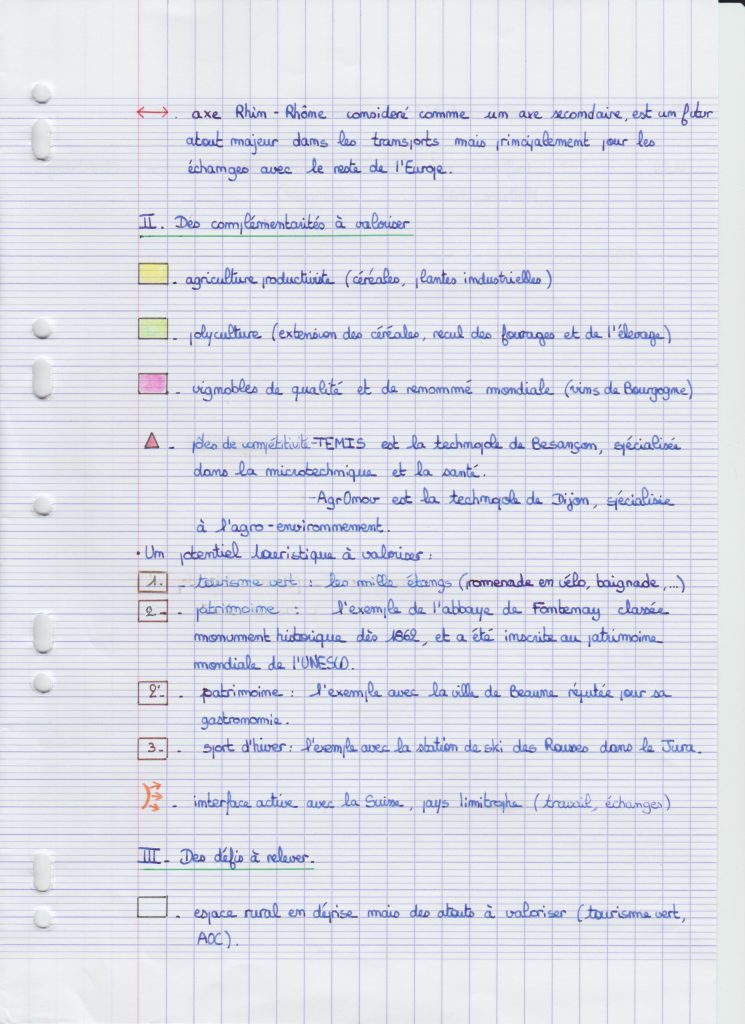 . axe Rhin - Rhône consideré comme un axe secondaire, est un futur
atout majeur dans les transports mais principalement pour les
échanges avec le reste de l'Europe.
II. Des complémentarités à valoriser
- agriculture productiviste (céréales, plantes industrielles)
- polyculture (extension des céréales, recul des fourrages et de l'élevage)
- vignobles de qualité et de renommé mondiale (vins de Bourgogne)
- pôles de compétitivité - TEMIS est la technopole de Besançon, spécialisée
dans la microtechnique et la santé.
- AgrOnov est la technopole de Dijon, spécialisée
à l'agro-environnement.
• Un potentiel touristique à valoriser :
1. - tourisme vert : les mille étangs (promenade en vélo, baignade,...)
2 - - patrimoine : l'exemple de l'abbaye de Fontenay classée
monument historique dès 1862, et a été inscrite au patrimoine
mondiale de l'UNESCO.
2'- - patrimoine : l'exemple avec la ville de Beaune réputée pour sa
gastronomie.
3 - - sport d'hiver : l'exemple avec la station de ski des Rousses dans le Jura.
- interface active avec la Suisse, pays limitrophe (travail, échanges)
III - Des défis à relever.
- espace rural en déprise mais des atouts à valoriser (tourisme vert,
AOC).